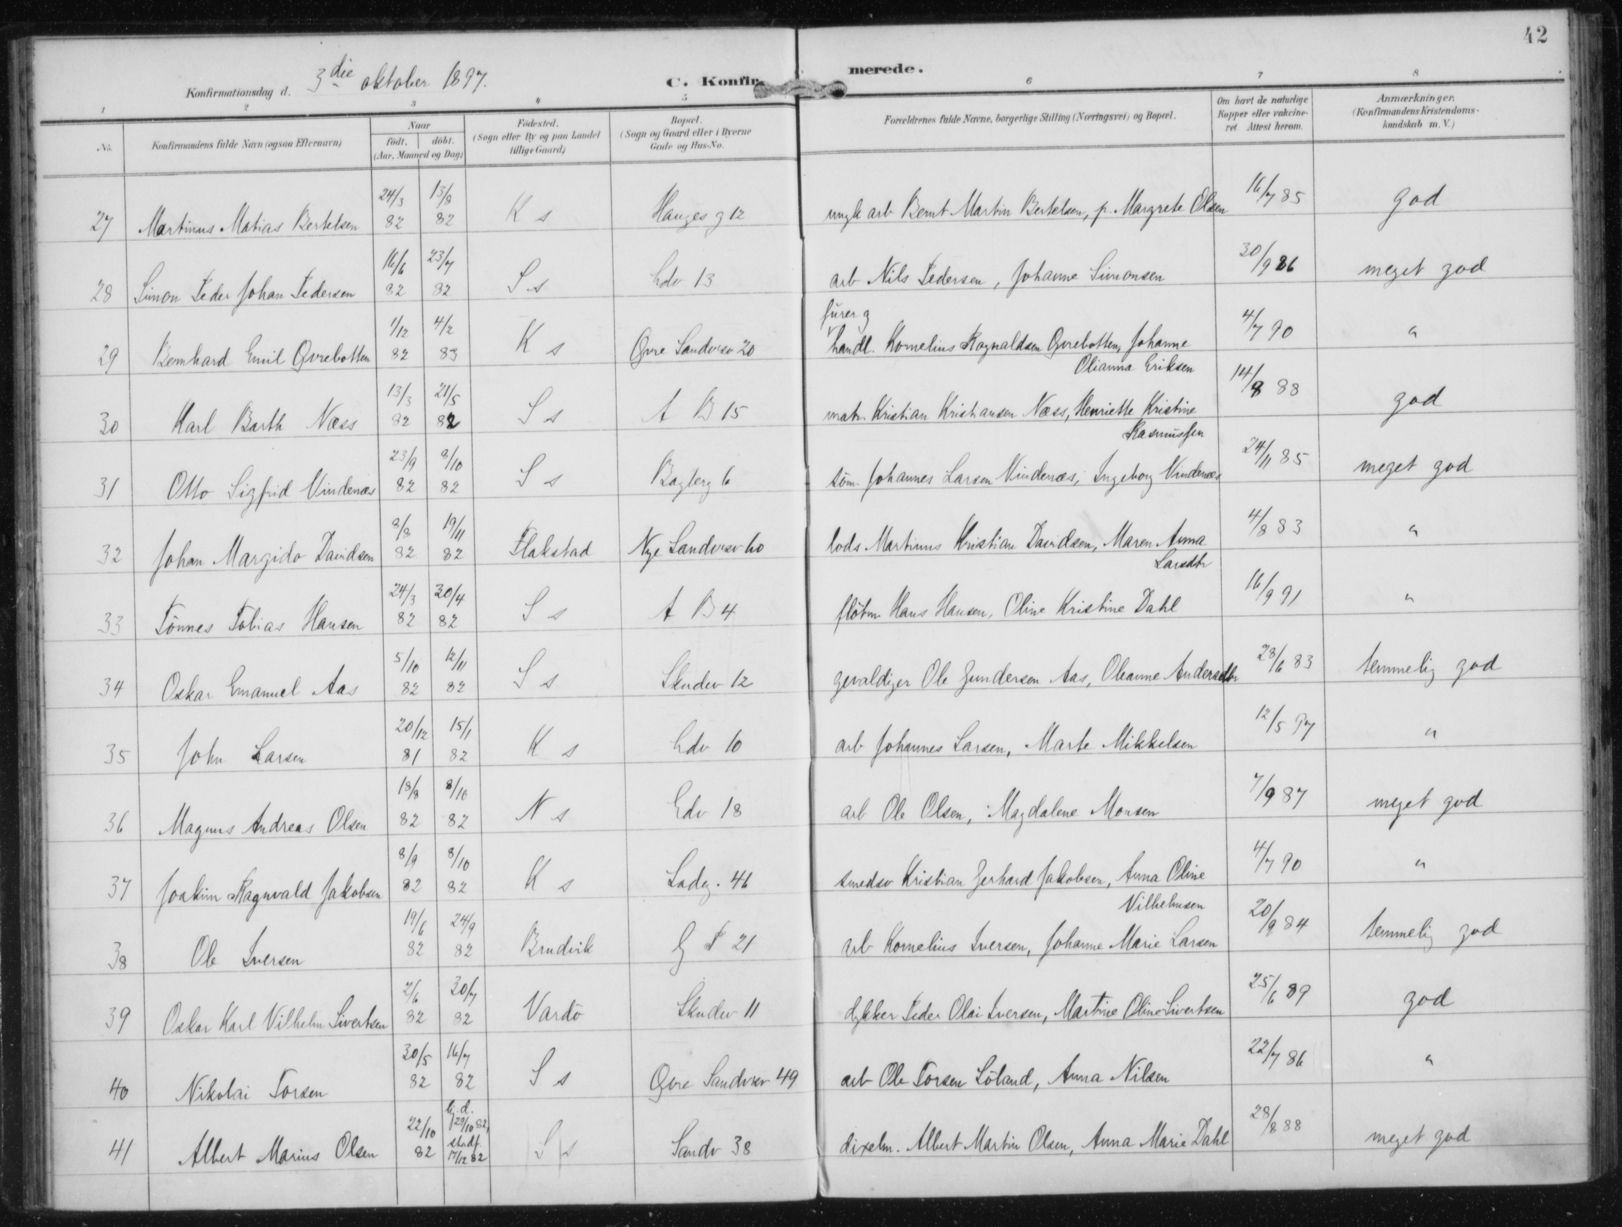 42
Konfirmationsdag d. 3die oktober 1897.
C. Konfirmerede.
1 2 3 4 5 6 7 8
No. Konfirmandens fulde Navn (ogsaa Efternavn) Naar født. døbt. (Aar, Maaned og Dag) Fødested. (Sogn eller By og paa Landet tillige Gaard) Bopæl. (Sogn og Gaard eller i Byerne Gade og Hus-No. Forældrenes fulde Navne, borgerlige Stilling (Næringsvei) og Bopæl. Om havt de naturlige Kopper eller vakcineret Attest herom. Anmærkninger. (Konfirmandens Kristendomskundskab m. V.)
27 Martinus Matias Bertelsen 24/3 82 13/8 82 K s Hauges g 12 arb Bernt Martin Bertelsen, p. Margrete Olsen 16/7 85 god
28 Simon Peder Johan Pedersen 16/6 82 23/7 82 S s Ladv 13 arb Nils Pedersen, Johanne Simonsen 30/9 86 meget god
29 Bernhard Emil Øvrebotten 1/12 82 4/2 83 K s Øvre Sandvsv 20 furer g handl. Kornelius Ragnvaldsen Øvrebotten, Johanne Olianna Eriksen 4/7 90 "
30 Karl Barth Næss 13/3 82 21/5 82 S s A B 15 matr Kristian Kristiansen Næss, Henriette Kristine Rasmussen 14/8 88 god
31 Otto Sigfrid Vindenæs 23/9 82 9/10 82 S s Bagleg 6 søm Johannes Larsen Vindenæs, Ingeborg Vindenæs 24/11 85 meget god
32 Johan Margido Davidsen 8/8 82 19/11 82 Flakstad Nye Sandvsv 60 lods Martinus Kristian Davidsen, Maren Anna Larsdtr 4/8 83 "
33 Tönnes Tobias Hansen 24/3 82 30/4 82 S s A B 4 fløtm Hans Hansen, Oline Kristine Dahl 16/9 91 "
34 Oskar Emanuel Aas 5/10 82 12/11 82 S s Skudev 12 gevaldiger Ole Gundersen Aas, Oleanne Andersdtr 28/6 83 temmelig god
35 John Larsen 20/12 81 15/1 82 K s Ladv 10 arb Johannes Larsen, Marte Mikkelsen 12/5 97 "
36 Magnus Andreas Olsen 18/8 82 8/10 82 N s Ladv 18 arb Ole Olsen, Magdalene Monsen 7/9 87 meget god
37 Joakim Ragnvald Jakobsen 8/9 82 8/10 82 K s Ladeg. 46 smedsv Kristian Gerhard Jakobsen, Anna Oline Vilhelmsen 4/7 90 "
38 Ole Iversen 19/6 82 24/9 82 Bruvik G P 21 arb Kornelius Iversen, Johanne Marie Larsen 20/9 84 temmelig god
39 Oskar Karl Vilhelm Sivertsen 2/6 82 30/7 82 Vardö Skudev 11 dykker Peder Olai Iversen, Martine Oline Sivertsen 25/6 89 god
40 Nikolai Torsen 30/5 82 16/7 82 S s Øvre Sandvsv 49 arb Ole Torsen Löland, Anna Nilsen 22/7 86 "
41 Albert Marius Olsen 22/10 82 h. d. 29/10 82, stadf. 17/12 82 S s Sandv 38 dixelm. Albert Martin Olsen, Anna Marie Dahl 28/8 88 meget god